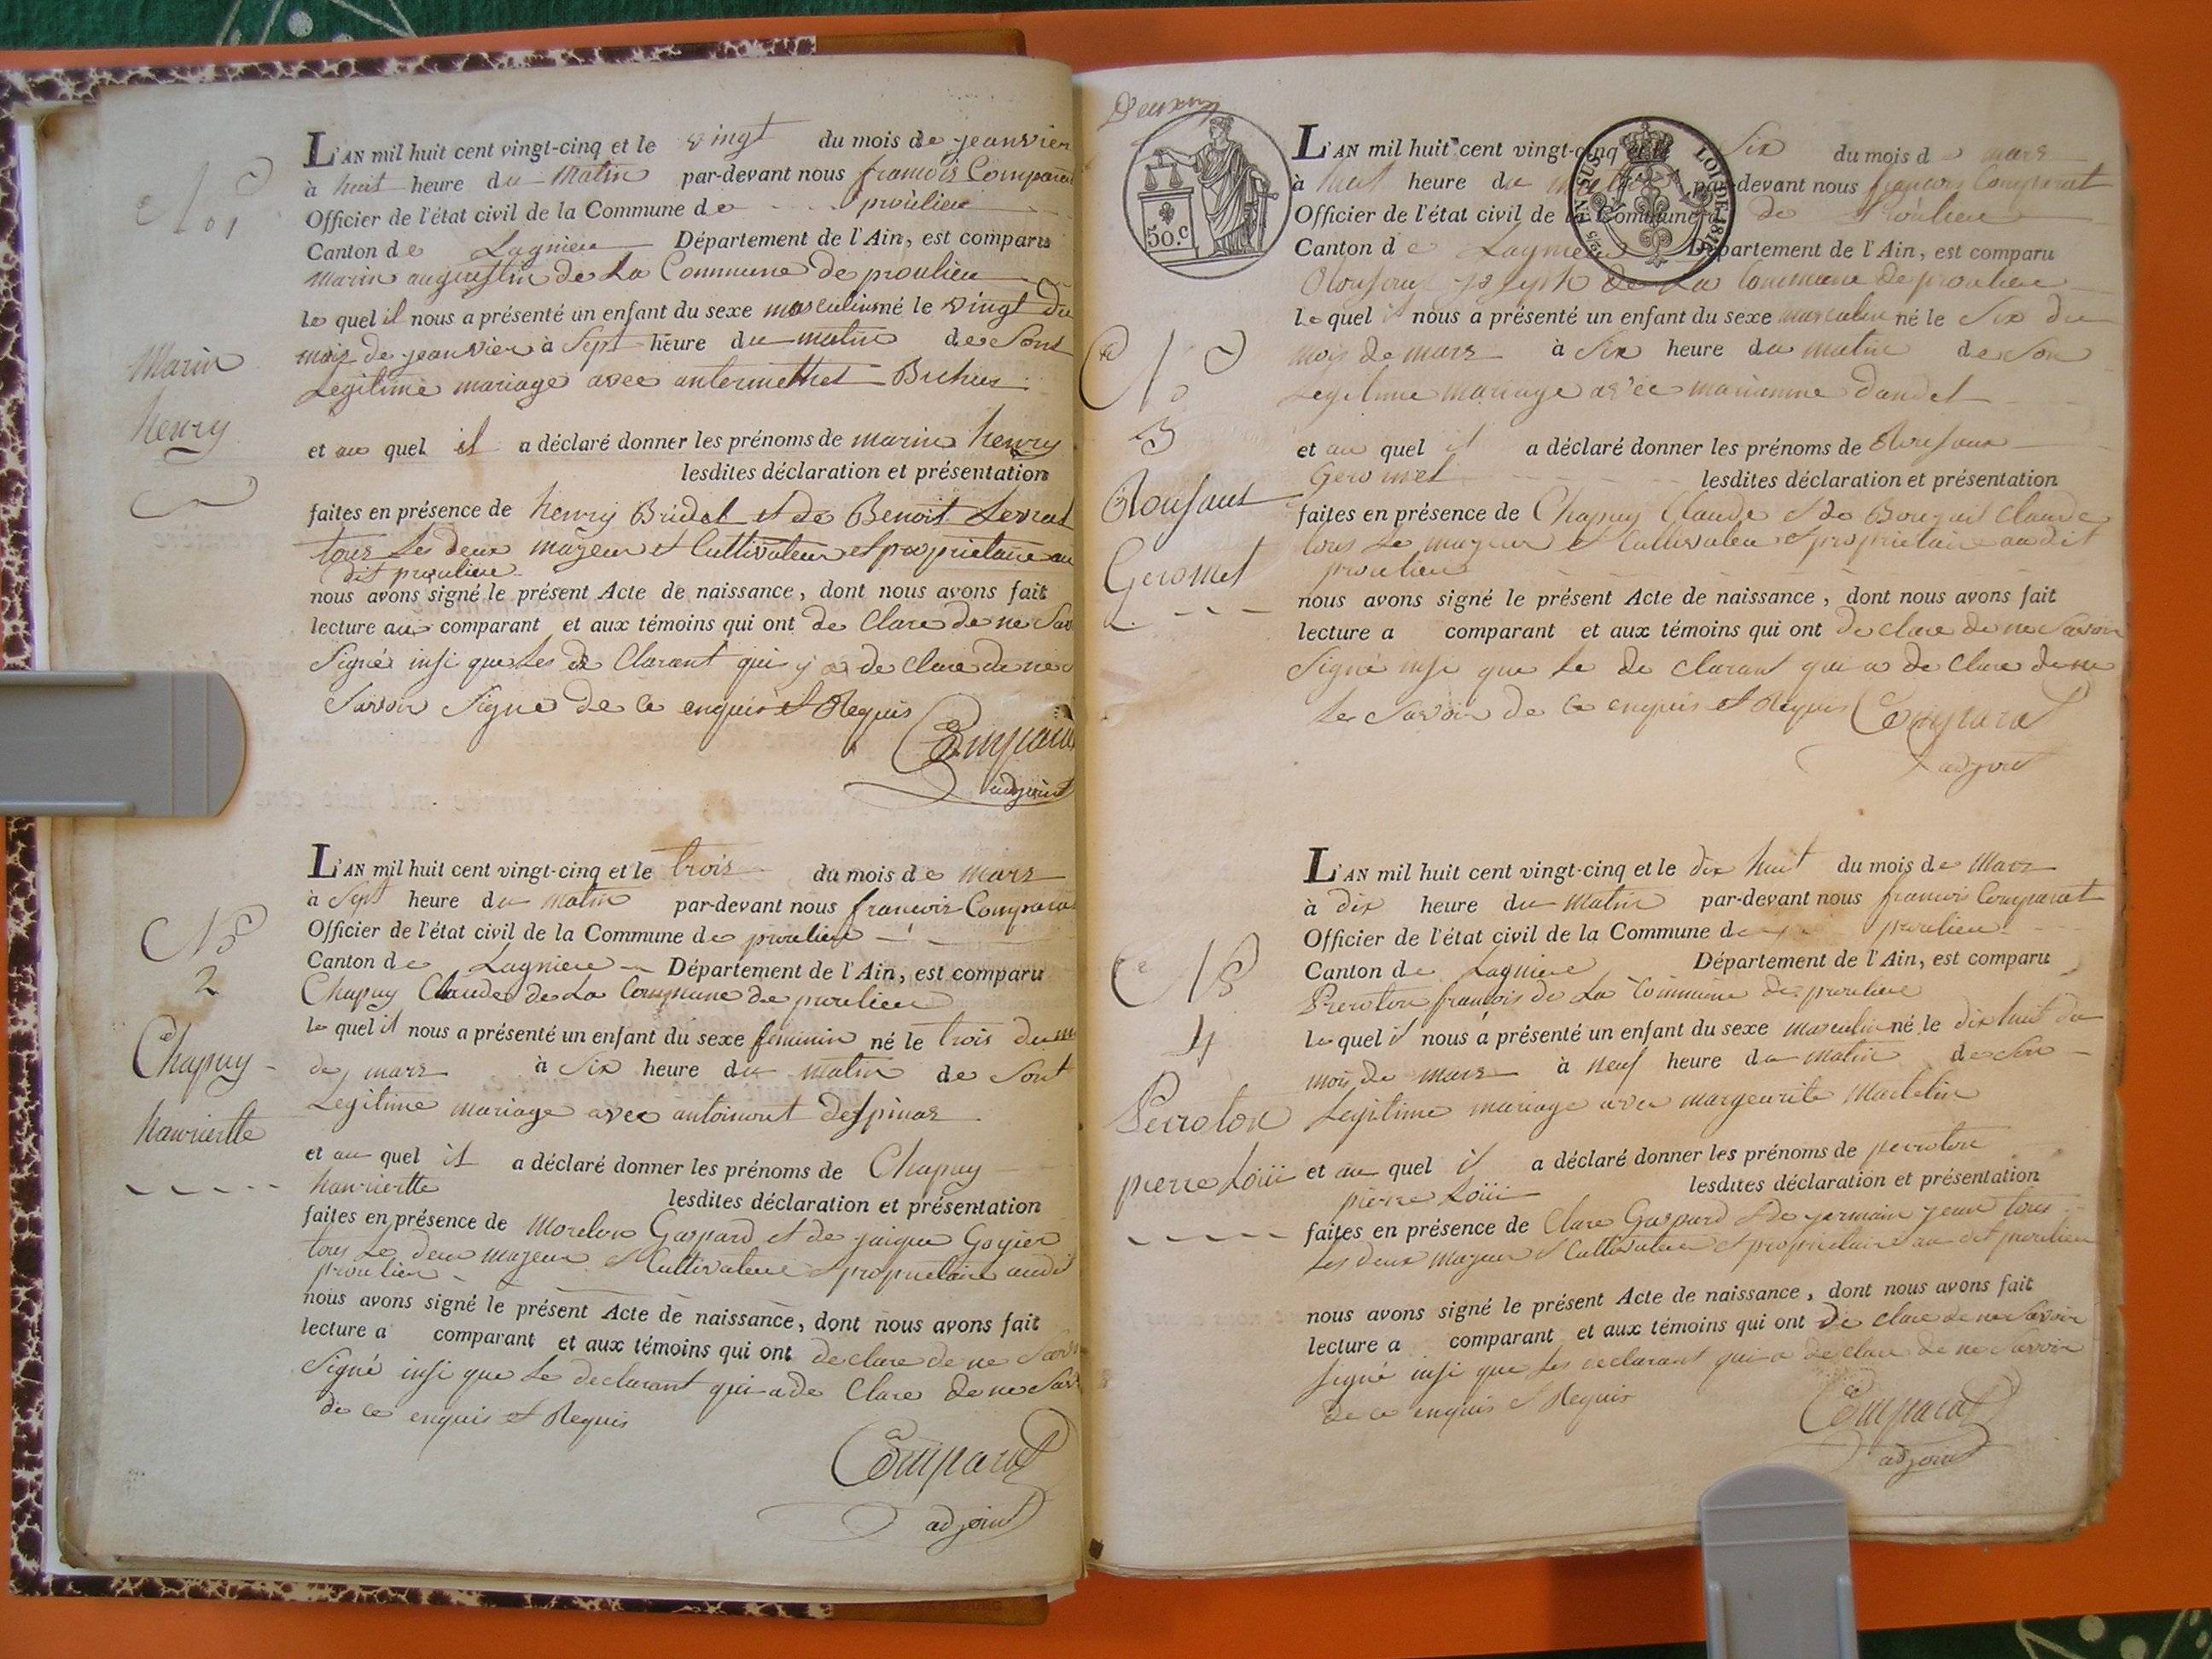 N° 1
Marin
henry
L'AN mil huit cent vingt-cinq et le vingt du mois de jeanvier
à huit heure du Matin par-devant nous francois Comparat
Officier de l'état civil de la Commune de proulieu
Canton de Lagnieu Département de l'Ain, est comparu
Marin augustin de La Commune de proulieu
le quel il nous a présenté un enfant du sexe masculin né le vingt du
mois de jeanvier à Sept heure du matin de Sont
Legitime mariage avec
et au quel il a déclaré donner les prénoms de marin henry
lesdites déclaration et présentation
faites en présence de henry Bridet et de Benoit
tous les deux majeur et Cultivateur et proprietaire au
dit proulieu
nous avons signé le présent Acte de naissance, dont nous avons fait
lecture au comparant et aux témoins qui ont de Clare de ne Sav
Signér insi que Les de Clarant qui y a de clare de ne
Savoir Signe de ce enquis et Requis
Comparat
adjoint
N°
2
Chapuy
hanriertte
L'AN mil huit cent vingt-cinq et le trois du mois de mars
à Sept heure du matin par-devant nous francois Comparat
Officier de l'état civil de la Commune de proulieu
Canton de Lagnieu Département de l'Ain, est comparu
Chapuy Claude de La Commune de proulieu
le quel il nous a présenté un enfant du sexe feminin né le trois du m
de mars à Six heure du matin de Sont
Legitime mariage avec antoinont despinas
et au quel il a déclaré donner les prénoms de Chapuy
hanriertte lesdites déclaration et présentation
faites en présence de Morelon Gaspard et de jaique Goyier
tous Le deux majeur et Cultivateur et proprietaire audit
proulieu
nous avons signé le présent Acte de naissance, dont nous avons fait
lecture a comparant et aux témoins qui ont declare de ne Savoir
Signé insi que Le declarant qui a de Clare de ne Sav
de ce enquis et Requis
Comparat
adjoint
50.C
EN SUS
LOI DE 1816
N°
3
Geromet
L'AN mil huit cent vingt-cinq et le Six du mois de mars
à huit heure du matin par-devant nous francois Comparat
Officier de l'état civil de la Commune de Proulieu
Canton de Lagnieu Département de l'Ain, est comparu
joseph de La Commune de proulieu
le quel il nous a présenté un enfant du sexe masculin né le Six du
mois de mars à Six heure du matin de Son
Legitime mariage avec marianne dandel
et au quel il a déclaré donner les prénoms de
Geromet lesdites déclaration et présentation
faites en présence de Chapuy Claude et de Claude
tous Le majeur et Cultivateu et proprietaire audit
proulieu
nous avons signé le présent Acte de naissance, dont nous avons fait
lecture a comparant et aux témoins qui ont de clare de ne Savoir
Signé insi que Le de Clarant qui a de Clare de ne
Le Savoir de Ce enquis et Requis Comparat
adjoint
N°
4
Perroton
pierre Loüi
L'AN mil huit cent vingt-cinq et le dix huit du mois de Mars
à dix heure du Matin par-devant nous francois Comparat
Officier de l'état civil de la Commune de proulieu
Canton de Lagnieu Département de l'Ain, est comparu
Perroton francois de La Commune de proulieu
le quel il nous a présenté un enfant du sexe masculin né le dix huit du
mois de mars à neuf heure du matin de Son
Legitime mariage avec margeurite
et au quel il a déclaré donner les prénoms de perroton
pierre Loüi lesdites déclaration et présentation
faites en présence de Clare Gaspard et de germain jean tous
Les deux majeur et Cultivateur et proprietaire au dit proulieu
nous avons signé le présent Acte de naissance, dont nous avons fait
lecture a comparant et aux témoins qui ont de clare de ne Savoir
signé insi que Les declarant qui a de clare de ne Savoir
de ce enquis et Requis
Comparat
adjoint